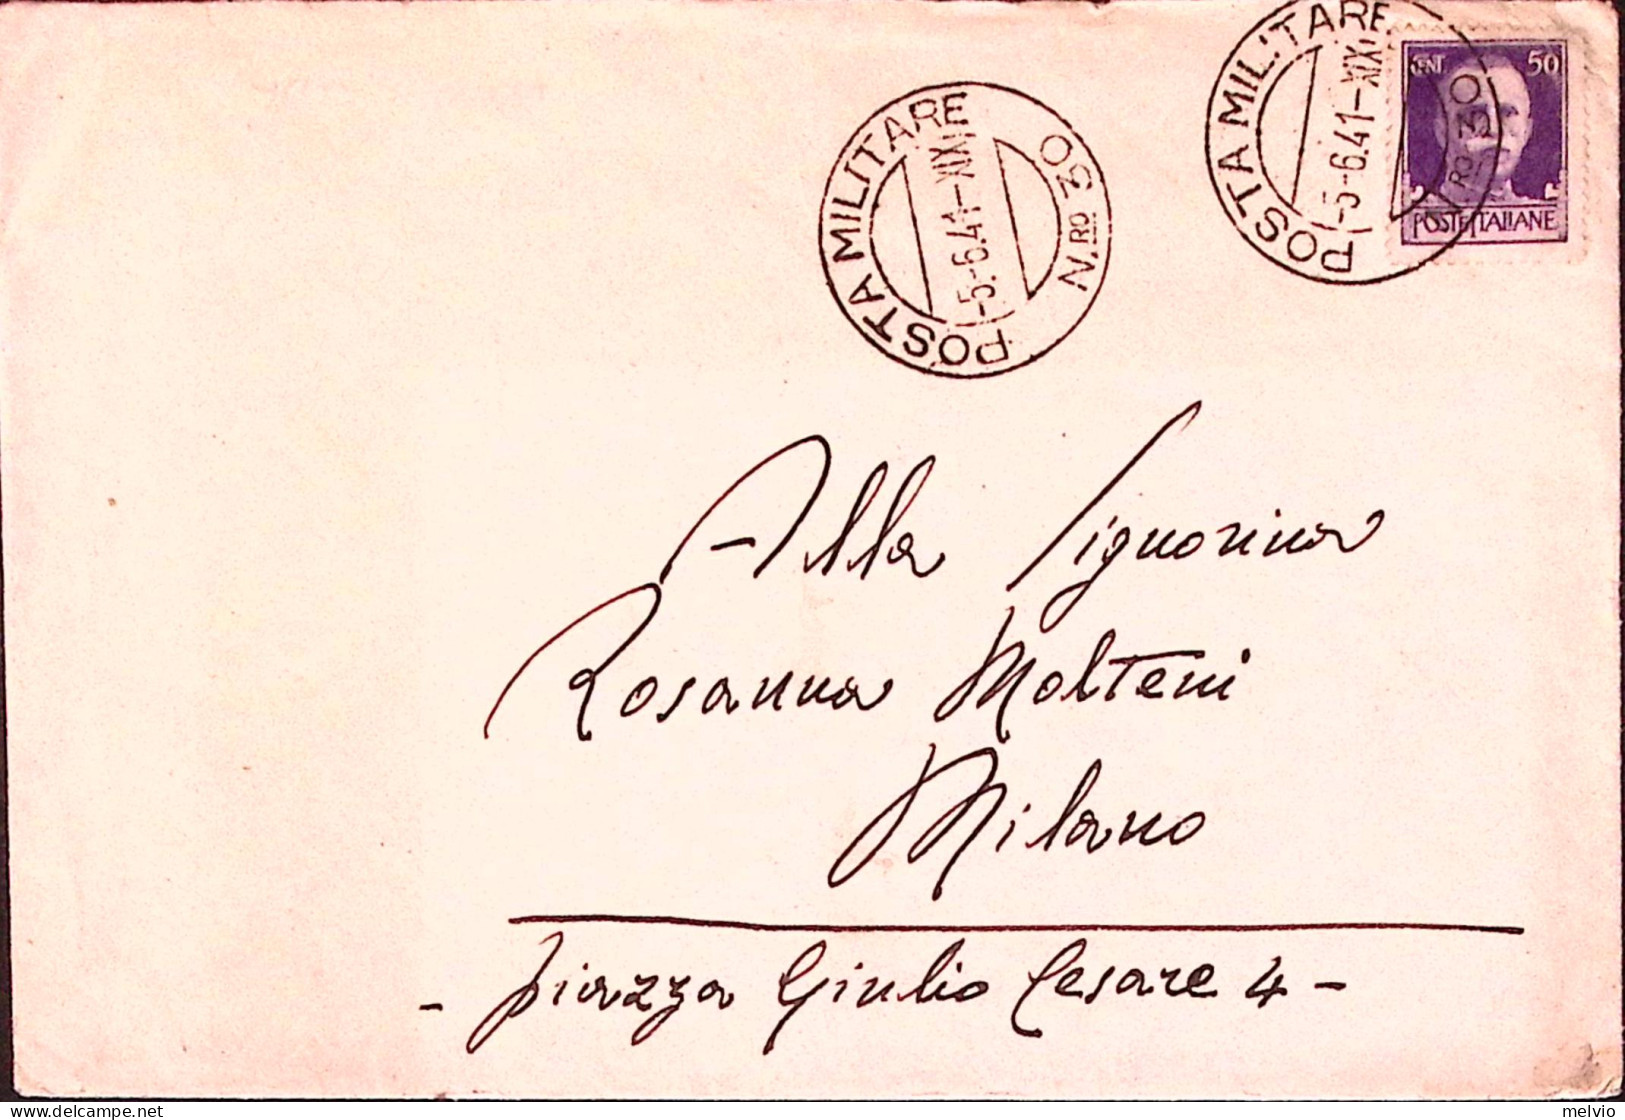 POSTA MILITARE N.RO 30
-5-6.41-XIX
POSTA MILITARE RO 30
-5-6.41-XIX
CENT 50
POSTE ITALIANE
Alla Signorina
Rosanna Molteni
Milano
- piazza Giulio Cesare 4 -
www.delcampe.net
melvio